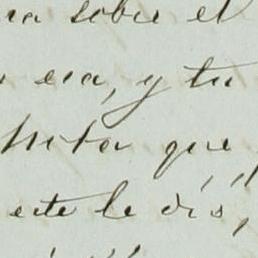 ra sobre el
era, y tu
hita que
este le dis,